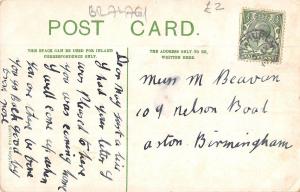 BRALAG1
£2
POST CARD.
THIS SPACE CAN BE USED FOR INLAND
CORRESPONDENCE ONLY.
THE ADDRESS ONLY TO BE
WRITTEN HERE.
Dear May just a line
I had your letter &
very Pleased to hear
you was coming home
I will come up when
you are home be sure
love rose
Miss M Beavan
109 nelson Road
aston Birmingham